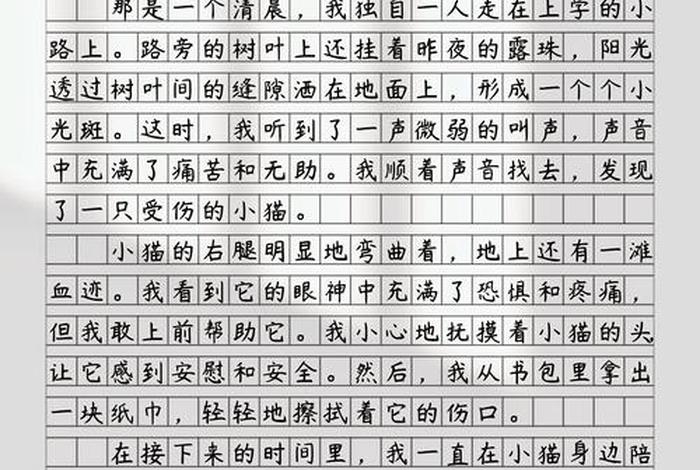 那是一个清晨，我独自一人走在上学的小
路上。路旁的树叶上还挂着昨夜的露珠，阳光
透过树叶间的缝隙洒在地面上，形成一个个小
光斑。这时，我听到了一声微弱的叫声，声音
中充满了痛苦和无助。我顺着声音找去，发现
了一只受伤的小猫。
小猫的右腿明显地弯曲着，地上还有一滩
血迹。我看到它的眼神中充满了恐惧和疼痛，
但我敢上前帮助它。我小心地抚摸着小猫的头，
让它感到安慰和安全。然后，我从书包里拿出
一块纸巾，轻轻地擦拭着它的伤口。
在接下来的时间里，我一直在小猫身边陪